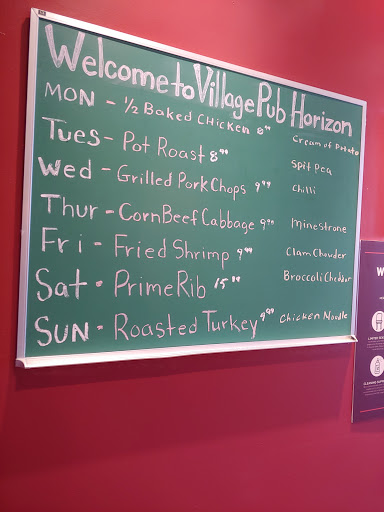 Welcome to Village Pub Horizon
MON - ½ Baked Chicken 8⁹⁹ Cream of Potato
Tues - Pot Roast 8⁹⁹ Split Pea
Wed - Grilled Pork Chops 9⁹⁹ Chilli
Thur - Corn Beef Cabbage 9⁹⁹ Minestrone
Fri - Fried Shrimp 9⁹⁹ Clam Chowder
Sat - Prime Rib 15⁹⁹ Broccoli Cheddar
SUN - Roasted Turkey 9⁹⁹ Chicken Noodle